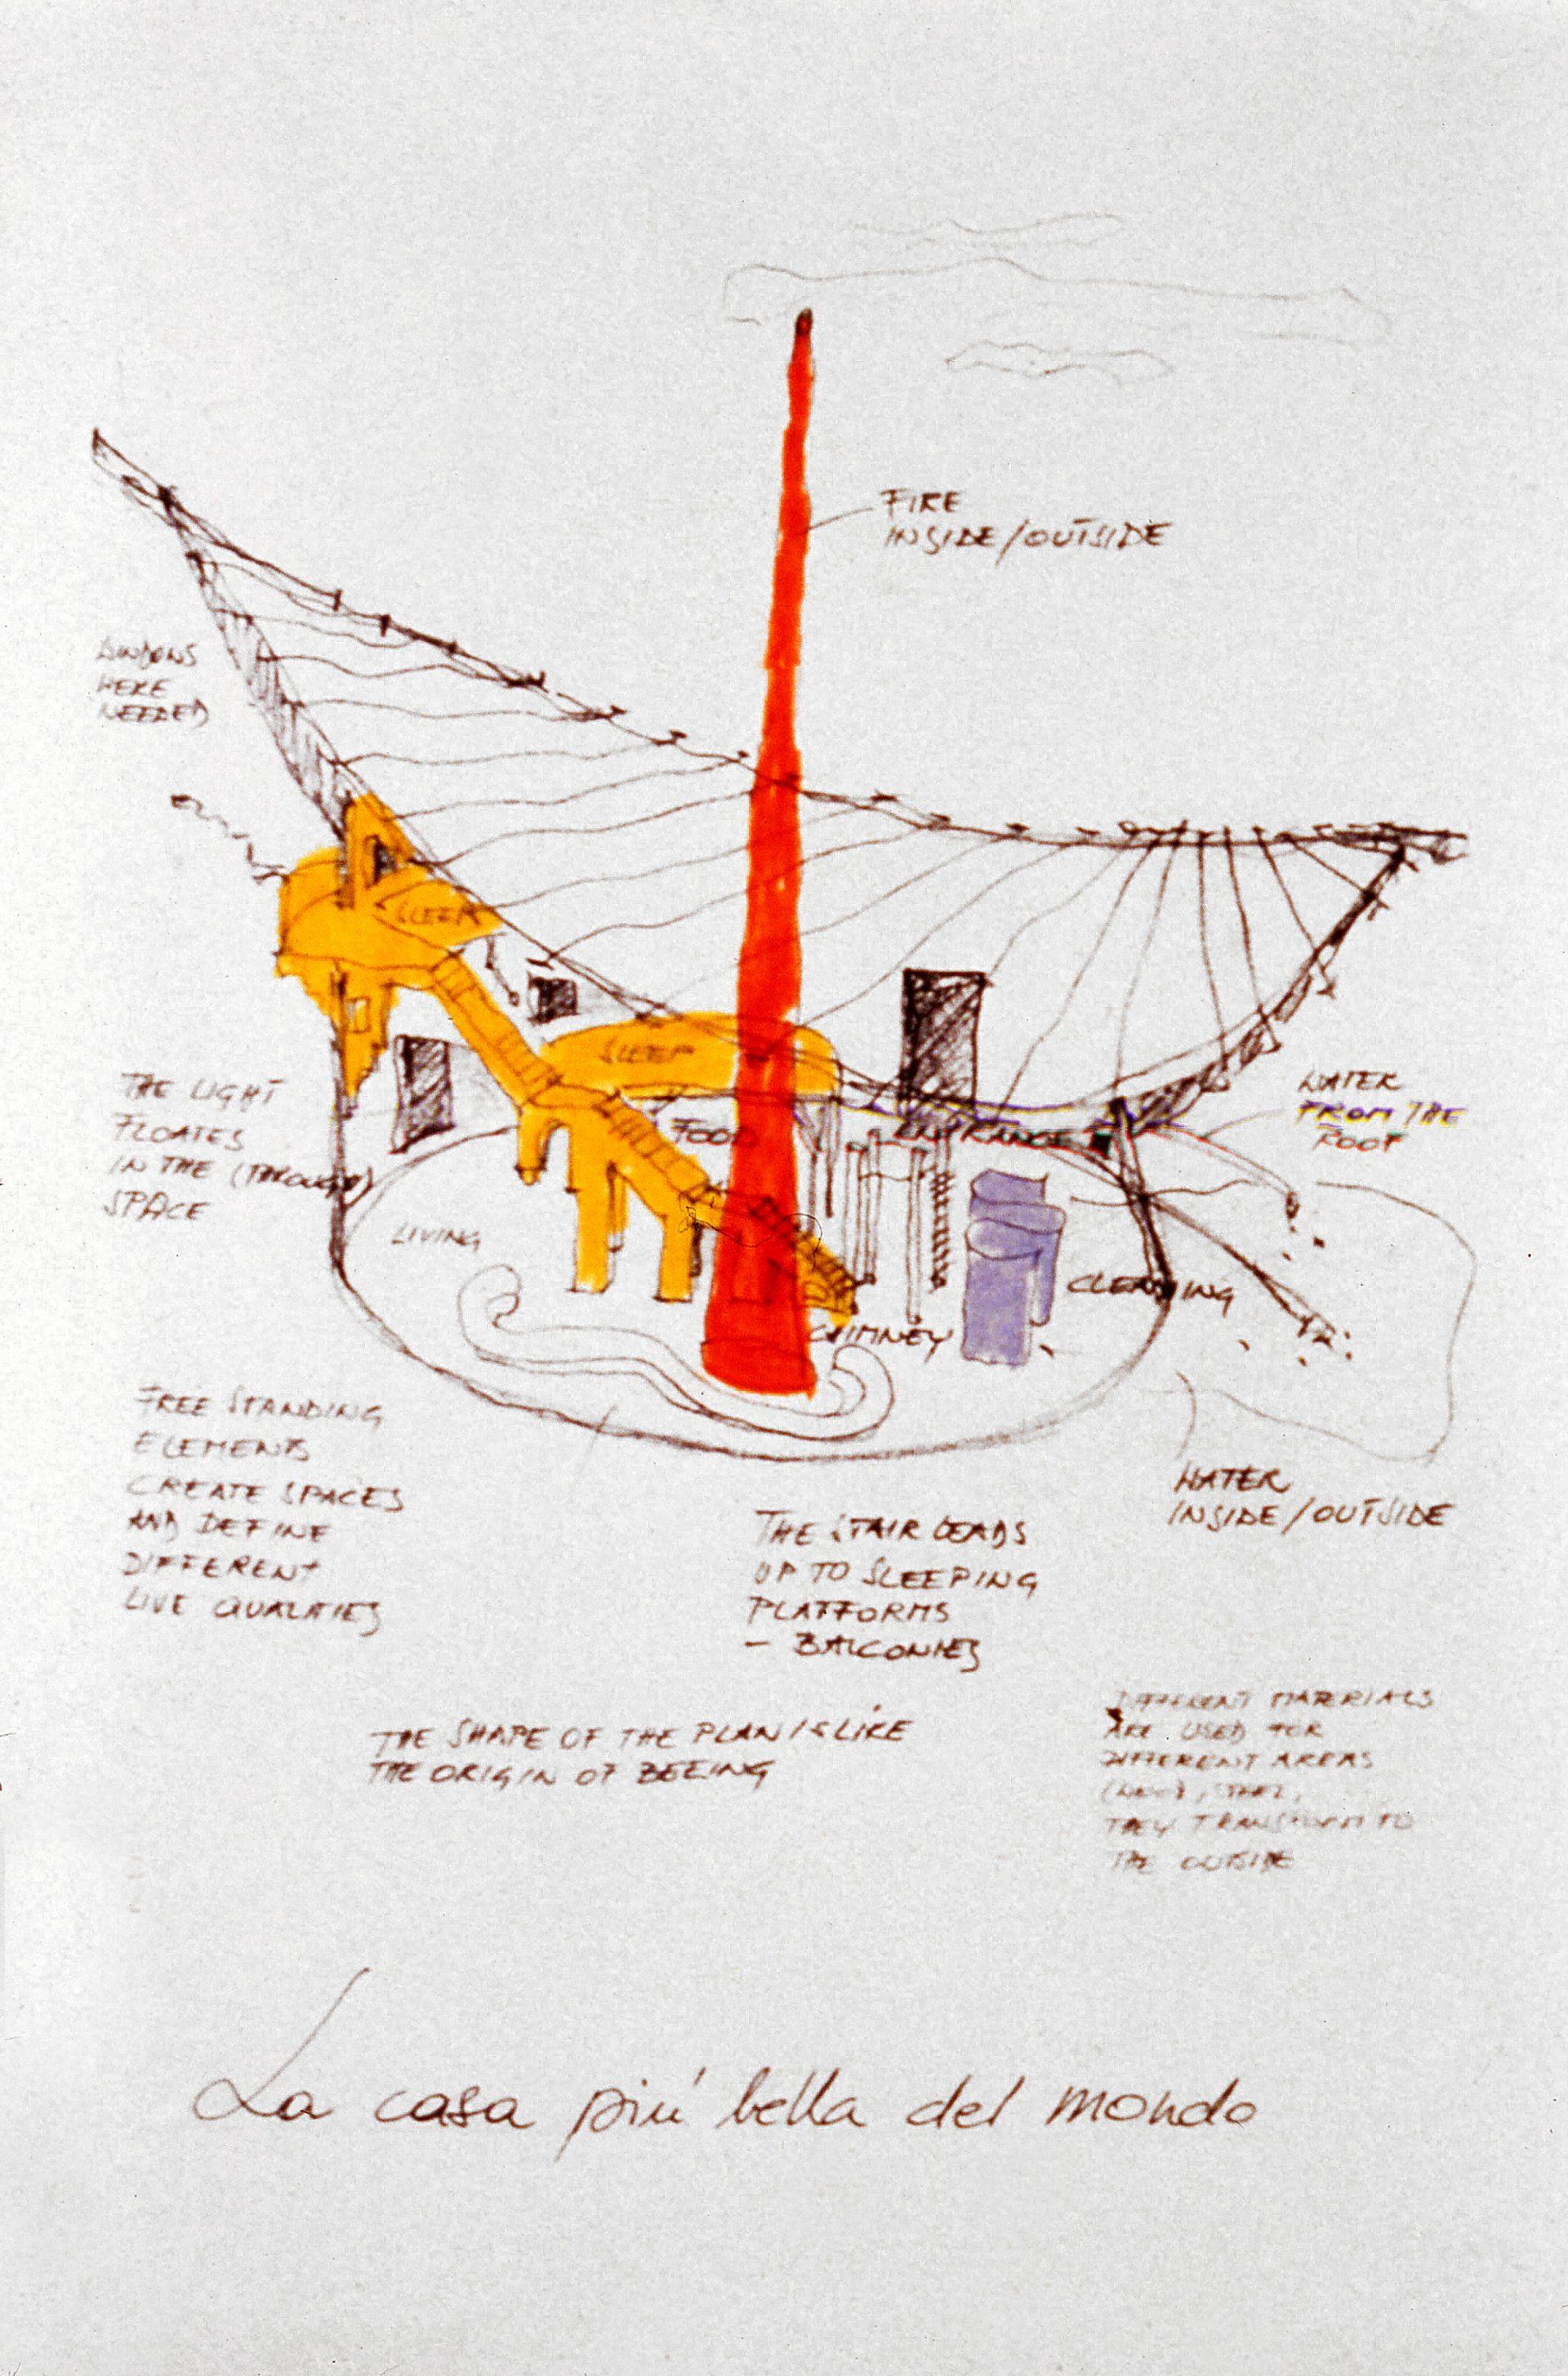 FIRE
INSIDE/OUTSIDE
HERE
NEEDED
SLEEP
SLEEP
FOOD
ENTRANCE
WATER
FROM THE
ROOF
THE LIGHT
FLOATES
IN THE (THROUGH)
SPACE
LIVING
CLEANING
CHIMNEY
FREE STANDING
ELEMENTS
CREATE SPACES
AND DEFINE
DIFFERENT
LIVE QUALITIES
WATER
INSIDE/OUTSIDE
THE STAIR LEADS
UP TO SLEEPING
PLATFORMS
- BALCONIES
THE SHAPE OF THE PLAN IS LIKE
THE ORIGIN OF BEEING
DIFFERENT MATERIALS
ARE USED FOR
DIFFERENT AREAS
(WOOD, STEEL,
THEY TRANSFORM TO
THE OUTSIDE
La casa piu' bella del mondo